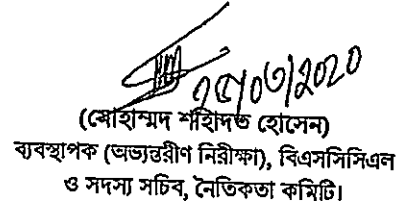 ২৫/০৩/২০২০
(মোহাম্মদ শহিদুল হোসেন)
ব্যবস্থাপক (অভ্যন্তরীণ নিরীক্ষা), বিএসসিসিএল
ও সদস্য সচিব, নৈতিকতা কমিটি।